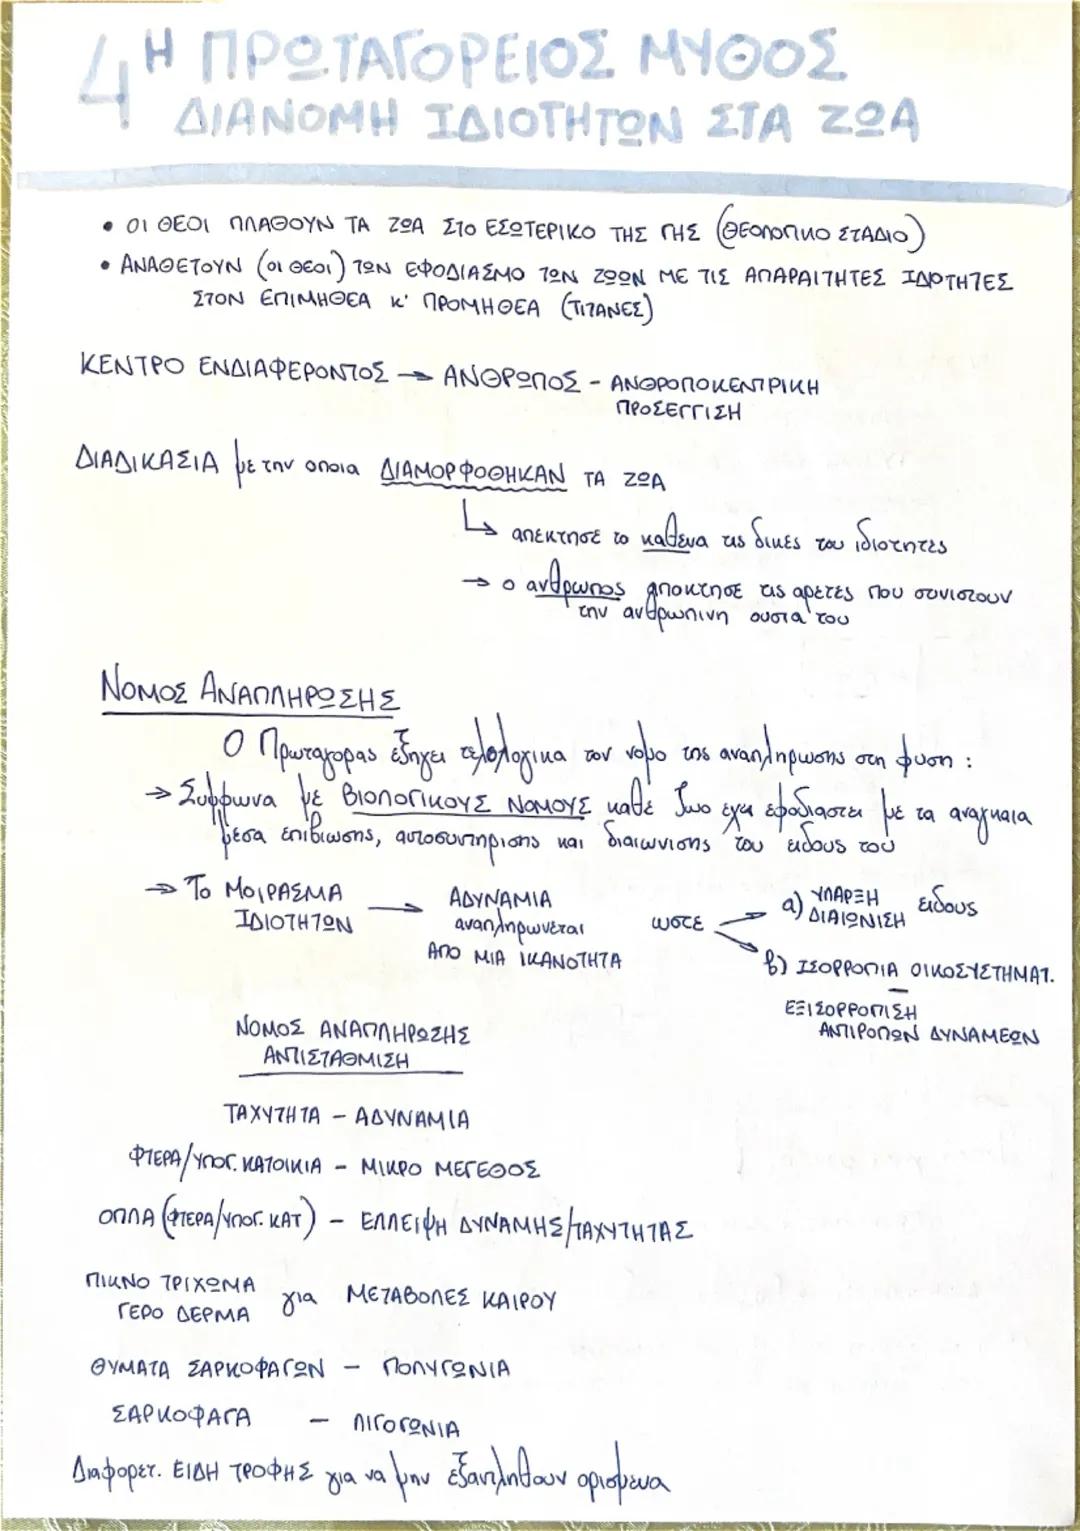 4 Η ΠΡΩΤΑΓΟΡΕΙΟΣ ΜΥΘΟΣ
ΔΙΑΝΟΜΗ ΙΔΙΟΤΗΤΩΝ ΣΤΑ ΖΩΑ
• ΟΙ ΘΕΟΙ ΠΛΑΘΟΥΝ ΤΑ ΖΩΑ ΣΤΟ ΕΣΩΤΕΡΙΚΟ ΤΗΣ ΓΗΣ (ΘΕΟΛΟΓΙΚΟ ΣΤΑΔΙΟ)
• ΑΝΑΘΕΤΟΥΝ (ΟΙ ΘΕΟΙ) ΤΩΝ ΕΦΟΔΙΑΣΜΟ ΤΩΝ ΖΩΩΝ ΜΕ ΤΙΣ ΑΠΑΡΑΙΤΗΤΕΣ ΙΔΙΟΤΗΤΕΣ
ΣΤΟΝ ΕΠΙΜΗΘΕΑ Κ' ΠΡΟΜΗΘΕΑ (ΤΙΤΑΝΕΣ)
ΚΕΝΤΡΟ ΕΝΔΙΑΦΕΡΟΝΤΟΣ → ΑΝΘΡΩΠΟΣ - ΑΝΘΡΟΠΟΚΕΝΤΡΙΚΗ
ΠΡΟΣΕΓΓΙΣΗ
ΔΙΑΔΙΚΑΣΙΑ με την οποια ΔΙΑΜΟΡΦΟΘΗΚΑΝ ΤΑ ΖΩΑ
↳ απεκτησε το καθενα τις δικες του ιδιοτητες
→ ο ανθρωπος αποκτησε τις αρετες που συνιστουν
την ανθρωπινη ουσια του
ΝΟΜΟΣ ΑΝΑΠΛΗΡΩΣΗΣ
Ο Πρωταγορας εξηγει τελολογικα τον νομο της αναπληρωσης στη φυση :
→ Συμφωνα με ΒΙΟΛΟΓΙΚΟΥΣ ΝΟΜΟΥΣ καθε ζωο εχει εφοδιαστει με τα αναγκαια
μεσα επιβιωσης, αυτοσυντηρισης και διαιωνισης του ειδους του
→ Το ΜΟΙΡΑΣΜΑ ΑΔΥΝΑΜΙΑ α) ΥΠΑΡΞΗ ειδους
ΙΔΙΟΤΗΤΩΝ → αναπληρωνεται ωστε ΔΙΑΙΩΝΙΣΗ
ΑΠΟ ΜΙΑ ΙΚΑΝΟΤΗΤΑ β) ΙΣΟΡΡΟΠΙΑ ΟΙΚΟΣΥΣΤΗΜΑΤ.
ΕΞΙΣΟΡΡΟΠΙΣΗ
ΑΝΤΙΡΟΠΩΝ ΔΥΝΑΜΕΩΝ
ΝΟΜΟΣ ΑΝΑΠΛΗΡΩΣΗΣ
ΑΝΤΙΣΤΑΘΜΙΣΗ
ΤΑΧΥΤΗΤΑ - ΑΔΥΝΑΜΙΑ
ΦΤΕΡΑ/ΥΠΟΓ. ΚΑΤΟΙΚΙΑ - ΜΙΚΡΟ ΜΕΓΕΘΟΣ
ΟΠΛΑ (ΦΤΕΡΑ/ΥΠΟΓ. ΚΑΤ) - ΕΛΛΕΙΨΗ ΔΥΝΑΜΗΣ/ΤΑΧΥΤΗΤΑΣ
ΠΙΚΝΟ ΤΡΙΧΩΜΑ
ΓΕΡΟ ΔΕΡΜΑ για ΜΕΤΑΒΟΛΕΣ ΚΑΙΡΟΥ
ΘΥΜΑΤΑ ΣΑΡΚΟΦΑΓΩΝ - ΠΟΛΥΓΩΝΙΑ
ΣΑΡΚΟΦΑΓΑ - ΛΙΓΟΓΩΝΙΑ
Διαφορετ. ΕΙΔΗ ΤΡΟΦΗΣ για να μην εξαντληθουν ορισμενα